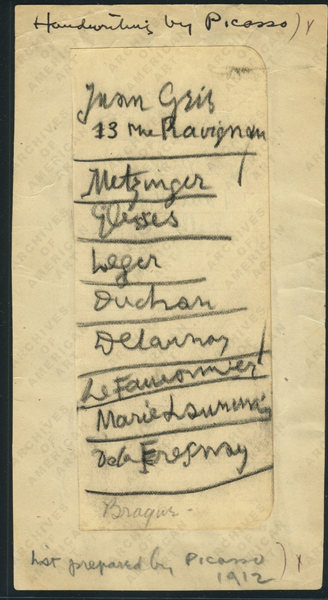 Handwriting by Picasso
Juan Gris
13 rue Ravignan
Metzinger
Gleises
Leger
Duchan
Delaunay
Le Fauconnier
Marie Laurencin
De la Fresnay
Braque
List prepared by Picasso
1912